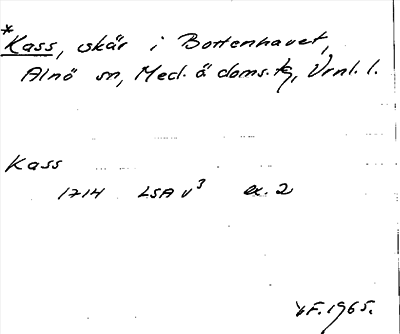 *Kass, skär i Bottenhavet,
Alnö sn, Med. ö doms.tg, Vrnl. l.
Kass
1714 LSA v³ ex. 2
F. 1965.